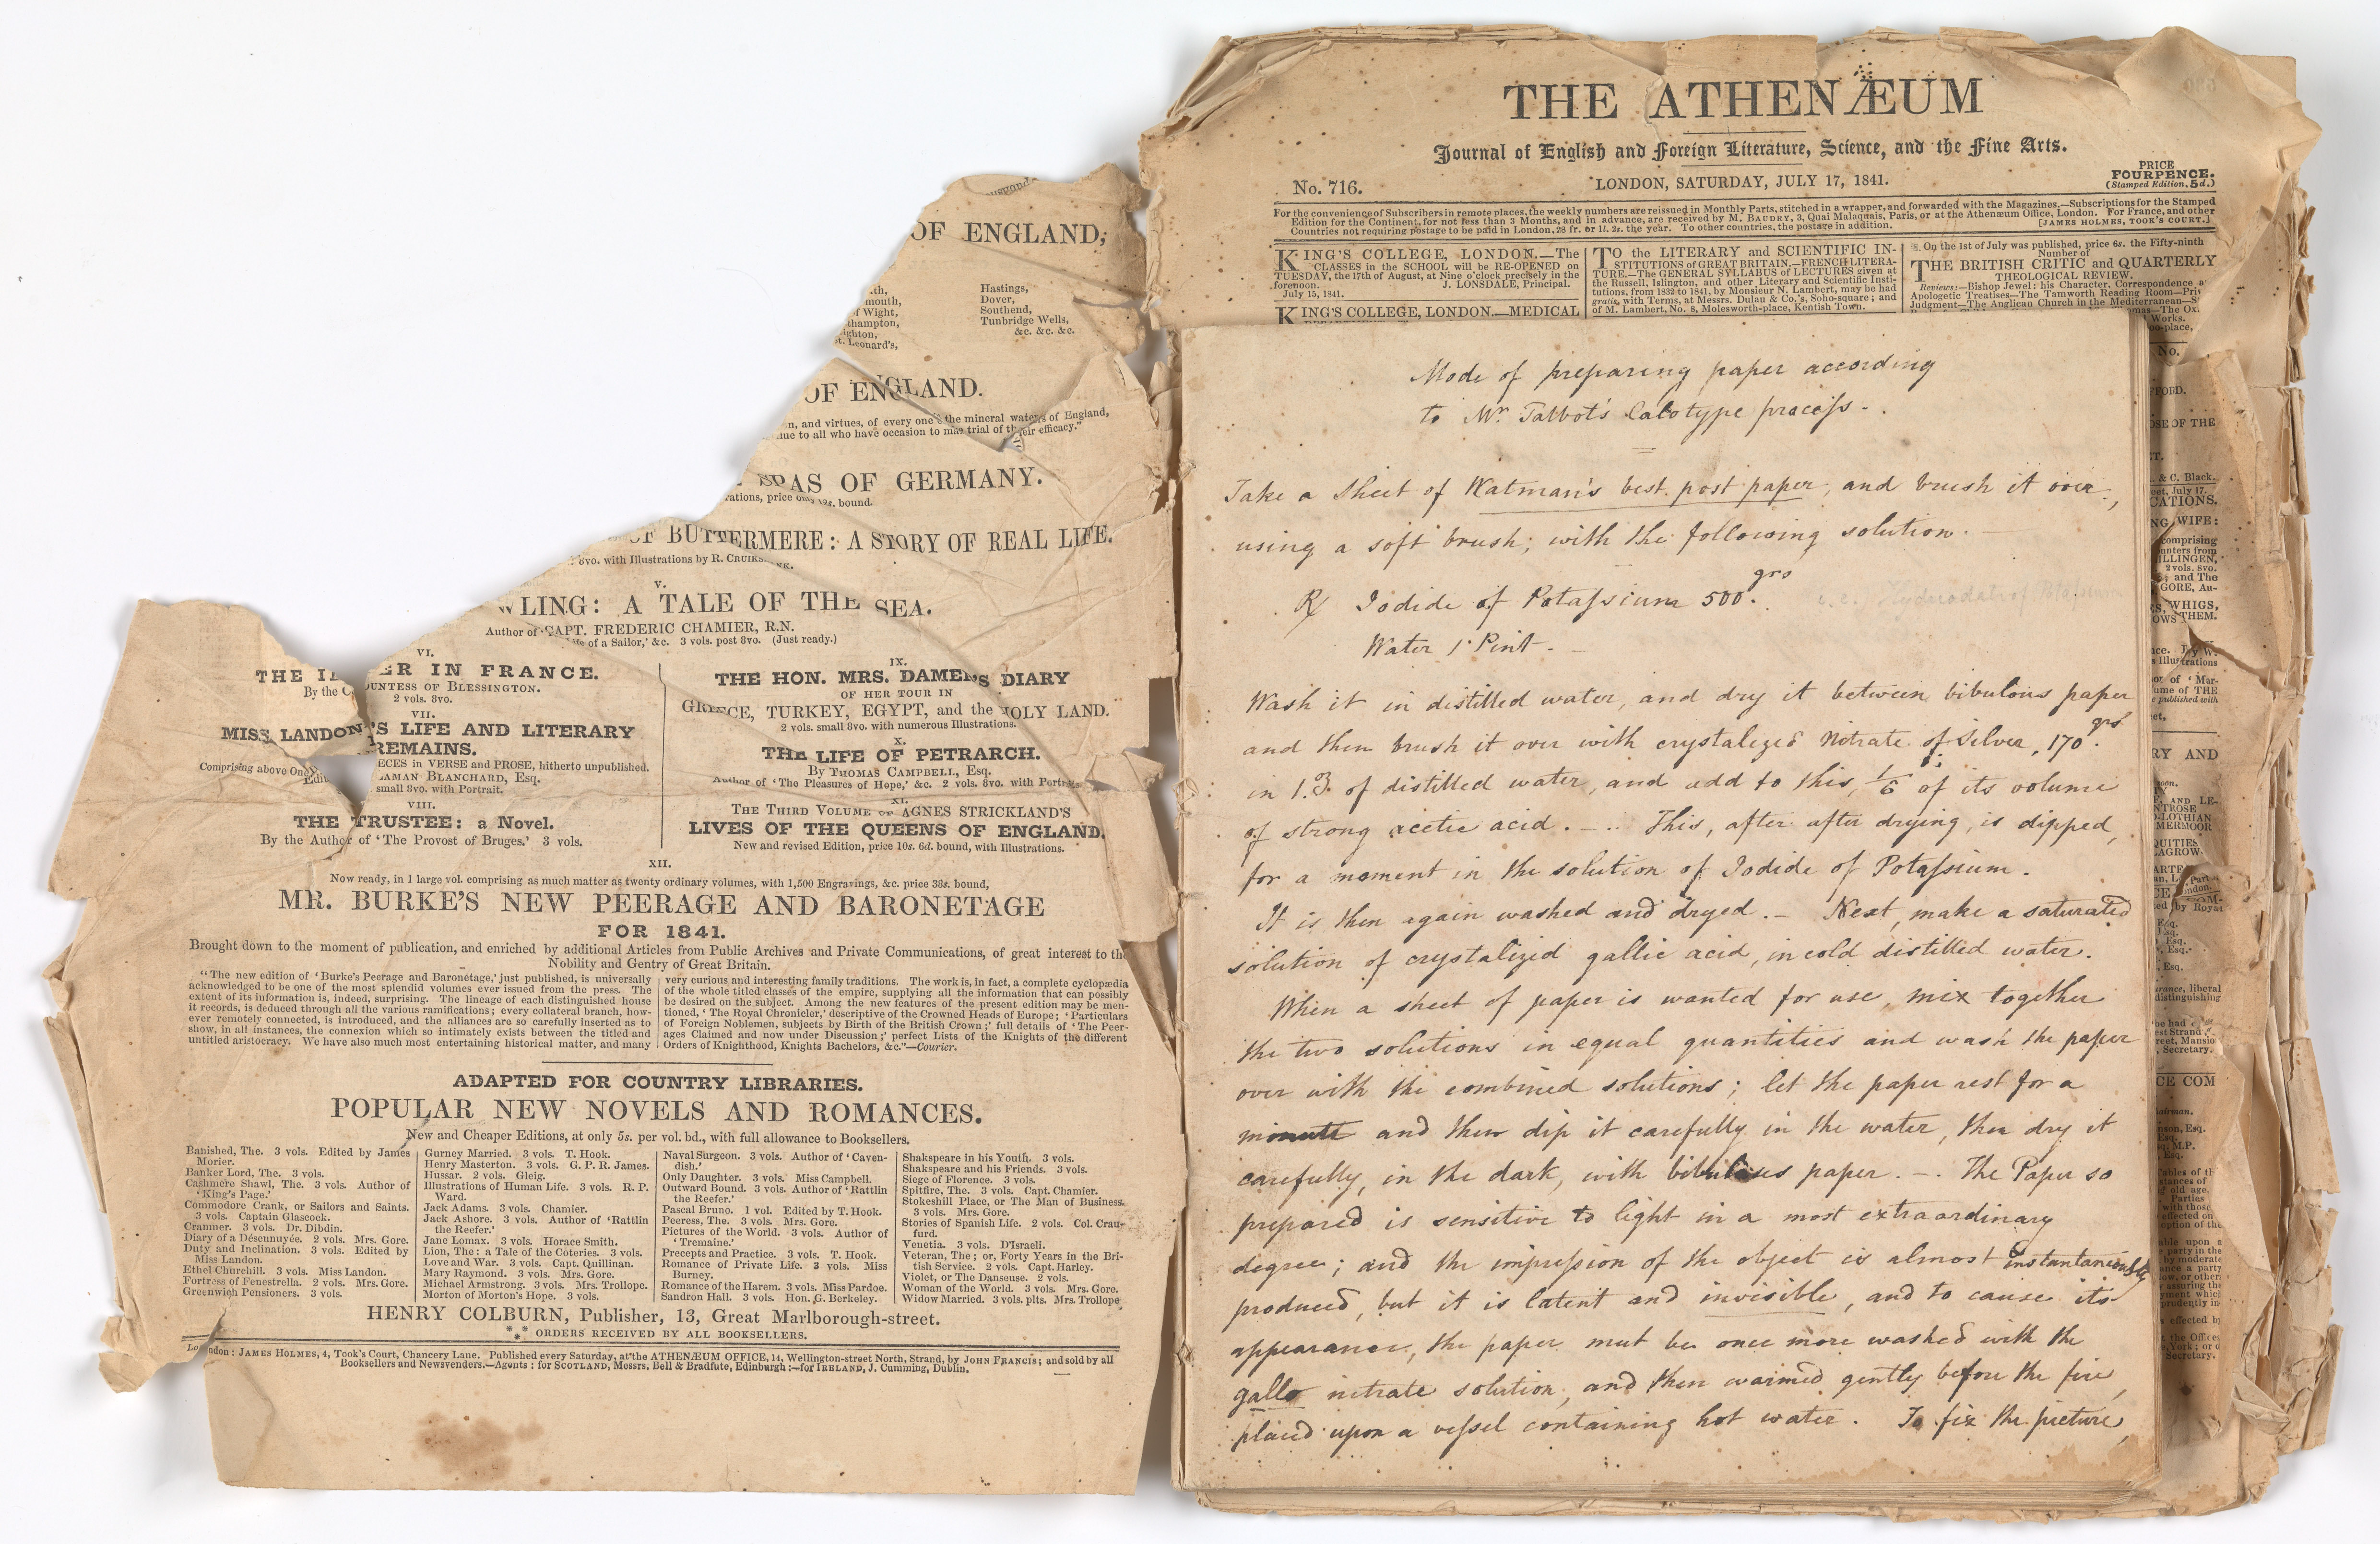 OF ENGLAND;
th,
mouth,
f Wight,
thampton,
ighton,
t. Leonard's,
Hastings,
Dover,
Southend,
Tunbridge Wells,
&c. &c. &c.
OF ENGLAND.
n, and virtues, of every one the mineral waters of England,
lue to all who have occasion to make trial of their efficacy."
SPAS OF GERMANY.
rations, price 12s. bound.
OF BUTTERMERE: A STORY OF REAL LIFE.
8vo. with Illustrations by R. CRUIKSHANK.
V.
WLING: A TALE OF THE SEA.
Author of CAPT. FREDERIC CHAMIER, R.N.
Life of a Sailor,' &c. 3 vols. post 8vo. (Just ready.)
VI.
THE ID ER IN FRANCE.
By the COUNTESS OF BLESSINGTON.
2 vols. 8vo.
VII.
MISS LANDON'S LIFE AND LITERARY
REMAINS.
Comprising above One ECES in VERSE and PROSE, hitherto unpublished.
Edit LAMAN BLANCHARD, Esq.
small 8vo. with Portrait.
VIII.
THE TRUSTEE: a Novel.
By the Author of 'The Provost of Bruges.' 3 vols.
IX.
THE HON. MRS. DAMER'S DIARY
OF HER TOUR IN
GREECE, TURKEY, EGYPT, and the HOLY LAND.
2 vols. small 8vo. with numerous Illustrations.
X.
THE LIFE OF PETRARCH.
By THOMAS CAMPBELL, Esq.
Author of 'The Pleasures of Hope,' &c. 2 vols. 8vo. with Portraits
XI.
THE THIRD VOLUME OF AGNES STRICKLAND'S
LIVES OF THE QUEENS OF ENGLAND.
New and revised Edition, price 10s. 6d. bound, with Illustrations.
XII.
Now ready, in 1 large vol. comprising as much matter as twenty ordinary volumes, with 1,500 Engravings, &c. price 38s. bound,
MR. BURKE'S NEW PEERAGE AND BARONETAGE
FOR 1841.
Brought down to the moment of publication, and enriched by additional Articles from Public Archives and Private Communications, of great interest to the
Nobility and Gentry of Great Britain.
"The new edition of 'Burke's Peerage and Baronetage,' just published, is universally
acknowledged to be one of the most splendid volumes ever issued from the press. The
extent of its information is, indeed, surprising. The lineage of each distinguished house
it records, is deduced through all the various ramifications; every collateral branch, how-
ever remotely connected, is introduced, and the alliances are so carefully inserted as to
show, in all instances, the connexion which so intimately exists between the titled and
untitled aristocracy. We have also much most entertaining historical matter, and many
very curious and interesting family traditions. The work is, in fact, a complete cyclopædia
of the whole titled classes of the empire, supplying all the information that can possibly
be desired on the subject. Among the new features of the present edition may be men-
tioned, 'The Royal Chronicler,' descriptive of the Crowned Heads of Europe; 'Particulars
of Foreign Noblemen, subjects by Birth of the British Crown;' full details of 'The Peer-
ages Claimed and now under Discussion;' perfect Lists of the Knights of the different
Orders of Knighthood, Knights Bachelors, &c."—Courier.
ADAPTED FOR COUNTRY LIBRARIES.
POPULAR NEW NOVELS AND ROMANCES.
New and Cheaper Editions, at only 5s. per vol. bd., with full allowance to Booksellers.
Banished, The. 3 vols. Edited by James
Morier.
Banker Lord, The. 3 vols.
Cashmere Shawl, The. 3 vols. Author of
'King's Page.'
Commodore Crank, or Sailors and Saints.
3 vols. Captain Glascock.
Cranmer. 3 vols. Dr. Dibdin.
Diary of a Désennuyée. 2 vols. Mrs. Gore.
Duty and Inclination. 3 vols. Edited by
Miss Landon.
Ethel Churchill. 3 vols. Miss Landon.
Fortress of Fenestrella. 2 vols. Mrs. Gore.
Greenwich Pensioners. 3 vols.
Gurney Married. 3 vols. T. Hook.
Henry Masterton. 3 vols. G. P. R. James.
Hussar. 2 vols. Gleig.
Illustrations of Human Life. 3 vols. R. P.
Ward.
Jack Adams. 3 vols. Chamier.
Jack Ashore. 3 vols. Author of 'Rattlin
the Reefer.'
Jane Lomax. 3 vols. Horace Smith.
Lion, The: a Tale of the Coteries. 3 vols.
Love and War. 3 vols. Capt. Quillinan.
Mary Raymond. 3 vols. Mrs. Gore.
Michael Armstrong. 3 vols. Mrs. Trollope.
Morton of Morton's Hope. 3 vols.
Naval Surgeon. 3 vols. Author of 'Caven-
dish.'
Only Daughter. 3 vols. Miss Campbell.
Outward Bound. 3 vols. Author of 'Rattlin
the Reefer.'
Pascal Bruno. 1 vol. Edited by T. Hook.
Peeress, The. 3 vols. Mrs. Gore.
Pictures of the World. 3 vols. Author of
'Tremaine.'
Precepts and Practice. 3 vols. T. Hook.
Romance of Private Life. 3 vols. Miss
Burney.
Romance of the Harem. 3 vols. Miss Pardoe.
Sandron Hall. 3 vols. Hon. G. Berkeley.
Shakspeare in his Youth. 3 vols.
Shakspeare and his Friends. 3 vols.
Siege of Florence. 3 vols.
Spitfire, The. 3 vols. Capt. Chamier.
Stokeshill Place, or The Man of Business.
3 vols. Mrs. Gore.
Stories of Spanish Life. 2 vols. Col. Crau-
furd.
Venetia. 3 vols. D'Israeli.
Veteran, The; or, Forty Years in the Bri-
tish Service. 2 vols. Capt. Harley.
Violet, or The Danseuse. 2 vols.
Woman of the World. 3 vols. Mrs. Gore.
Widow Married. 3 vols. plts. Mrs. Trollope
HENRY COLBURN, Publisher, 13, Great Marlborough-street.
*** ORDERS RECEIVED BY ALL BOOKSELLERS.
London: JAMES HOLMES, 4, Took's Court, Chancery Lane. Published every Saturday, at the ATHENÆUM OFFICE, 14, Wellington-street North, Strand, by JOHN FRANCIS; and sold by all
Booksellers and Newsvenders.—Agents: for SCOTLAND, Messrs. Bell & Bradfute, Edinburgh:—for IRELAND, J. Cumming, Dublin.
THE ATHENÆUM
Journal of English and Foreign Literature, Science, and the Fine Arts.
No. 716.
LONDON, SATURDAY, JULY 17, 1841.
PRICE
FOURPENCE.
(Stamped Edition, 5d.)
For the convenience of Subscribers in remote places, the weekly numbers are reissued in Monthly Parts, stitched in a wrapper, and forwarded with the Magazines.—Subscriptions for the Stamped
Edition for the Continent, for not less than 3 Months, and in advance, are received by M. BAUDRY, 3, Quai Malaquais, Paris, or at the Athenæum Office, London. For France, and other
Countries not requiring postage to be paid in London, 28 fr. or 1l. 2s. the year. To other countries, the postage in addition.
[JAMES HOLMES, TOOK'S COURT.]
KING'S COLLEGE, LONDON.—The
CLASSES in the SCHOOL will be RE-OPENED on
TUESDAY, the 17th of August, at Nine o'clock precisely in the
forenoon. J. LONSDALE, Principal.
July 15, 1841.
KING'S COLLEGE, LONDON.—MEDICAL
TO the LITERARY and SCIENTIFIC IN-
STITUTIONS of GREAT BRITAIN.—FRENCH LITERA-
TURE.—The GENERAL SYLLABUS of LECTURES given at
the Russell, Islington, and other Literary and Scientific Insti-
tutions, from 1832 to 1841, by Monsieur N. Lambert, may be had
gratis, with Terms, at Messrs. Dulau & Co.'s, Soho-square; and
of M. Lambert, No. 8, Molesworth-place, Kentish Town.
On the 1st of July was published, price 6s. the Fifty-ninth
Number of
THE BRITISH CRITIC and QUARTERLY
THEOLOGICAL REVIEW.
Reviews:—Bishop Jewel: his Character, Correspondence a
Apologetic Treatises—The Tamworth Reading Room—Priv
Judgment—The Anglican Church in the Mediterranean—S
mas—The Ox
Works.
oo-place,
Mode of preparing paper according
to Mr Talbot's Calotype process -.
Take a Sheet of Watman's best post paper, and brush it over,
using a soft brush; with the following solution. —
℞ Iodide of Potassium 500 grs.
Water 1 Pint. -
Wash it in distilled water, and dry it between bibulous paper
and then brush it over with crystalized Nitrate of Silver, 170 grs.
in 1.℥. of distilled water, and add to this, 1/6 of its volume
of strong acetic acid. — .. This, after after drying, is dipped,
for a moment in the solution of Iodide of Potassium.
It is then again washed and dryed. — Next, make a saturated
solution of crystalized gallic acid, in cold distilled water.
When a sheet of paper is wanted for use, mix together
the two solutions in equal quantities and wash the paper
over with the combined solutions; let the paper rest for a
minute and then dip it carefully in the water, then dry it
carefully, in the dark, with bibulous paper. — . The Paper so
prepared is sensitive to light in a most extraordinary
degree; and the impression of the object is almost instantaneously
produced, but it is latent and invisible, and to cause its
appearance, the paper must be once more washed with the
gallo nitrate solution, and then warmed gently before the fire,
placed upon a vessel containing hot water. To fix the picture,